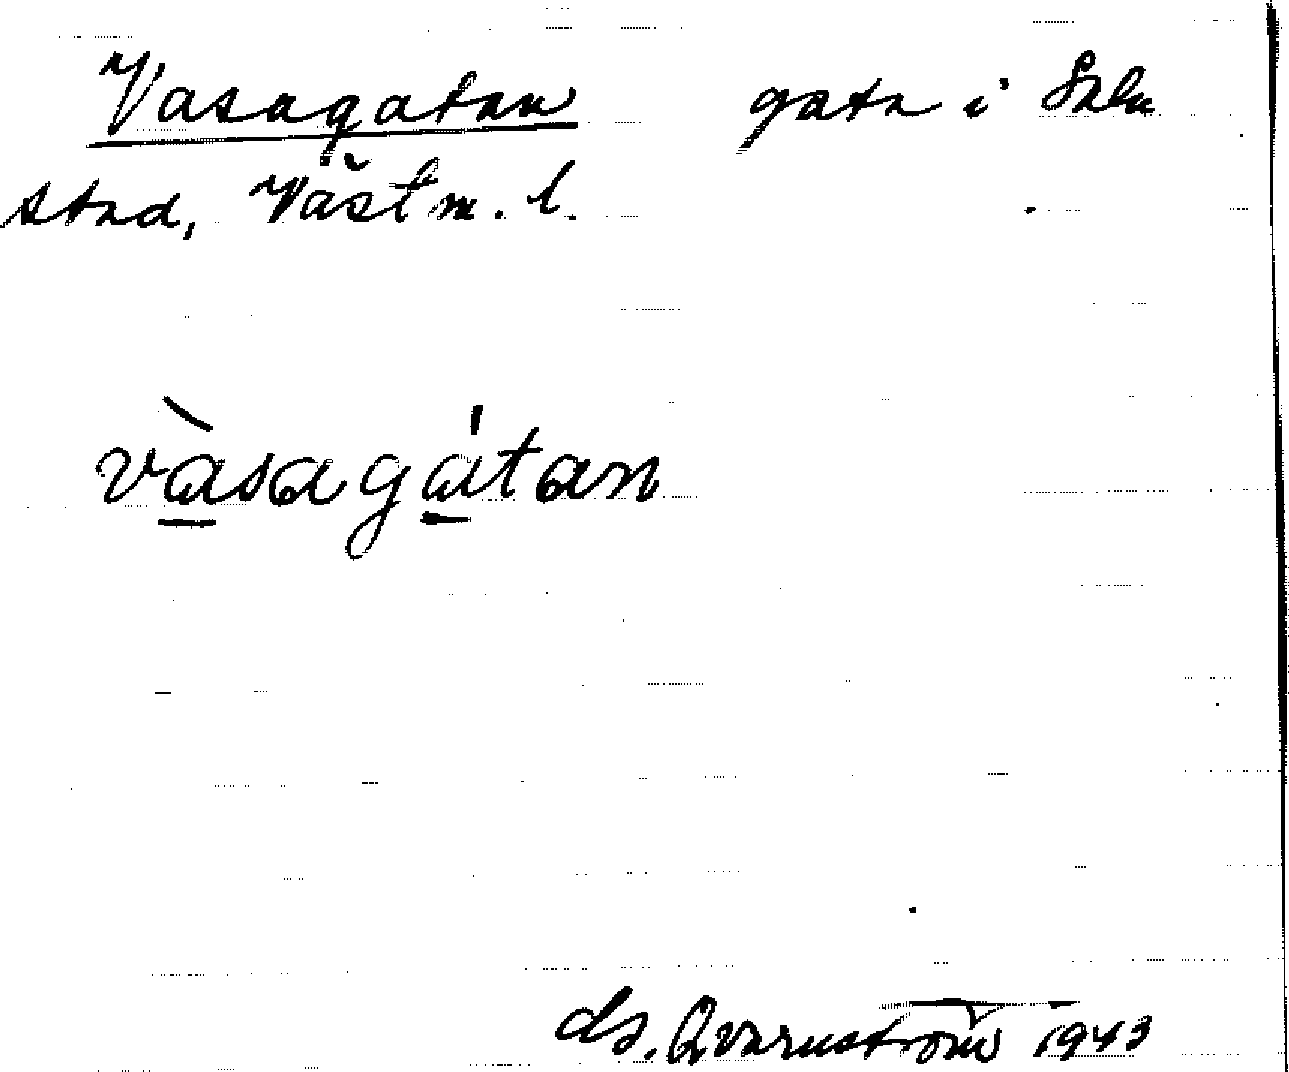 Vasagatan gata i Sala
stad, Västm. l.
vàsagátan
ds. Qvarnström 1943